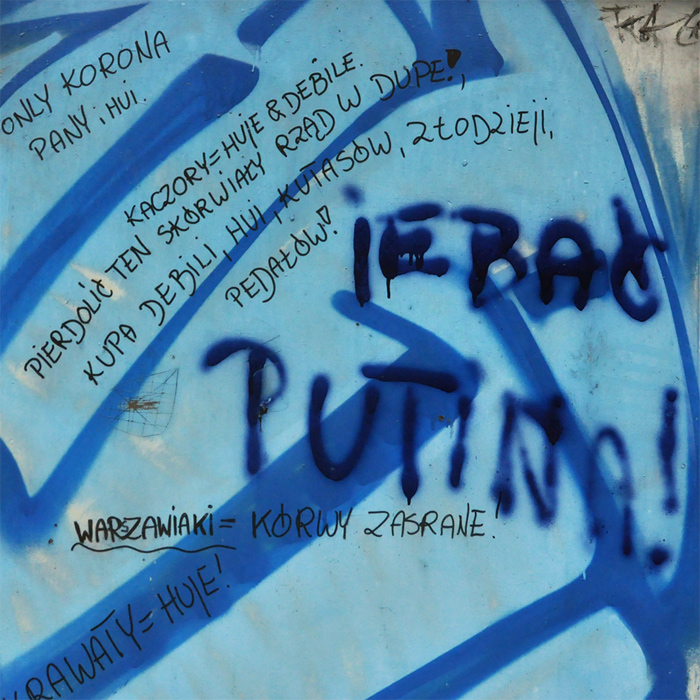 ONLY KORONA
PANY i HUI.
KACZORY = HUJE & DEBILE.
PIERDOLIĆ TEN SKÓRWIAŁY RZĄD W DUPE!,
KUPA DEBILI, HUI, KUTASÓW, ZŁODZIEJI,
PEDAŁÓW!
jEBAĆ
PUTINA!
WARSZAWIAKI = KÓRWY ZASRANE!
KRAWATY = HUJE!